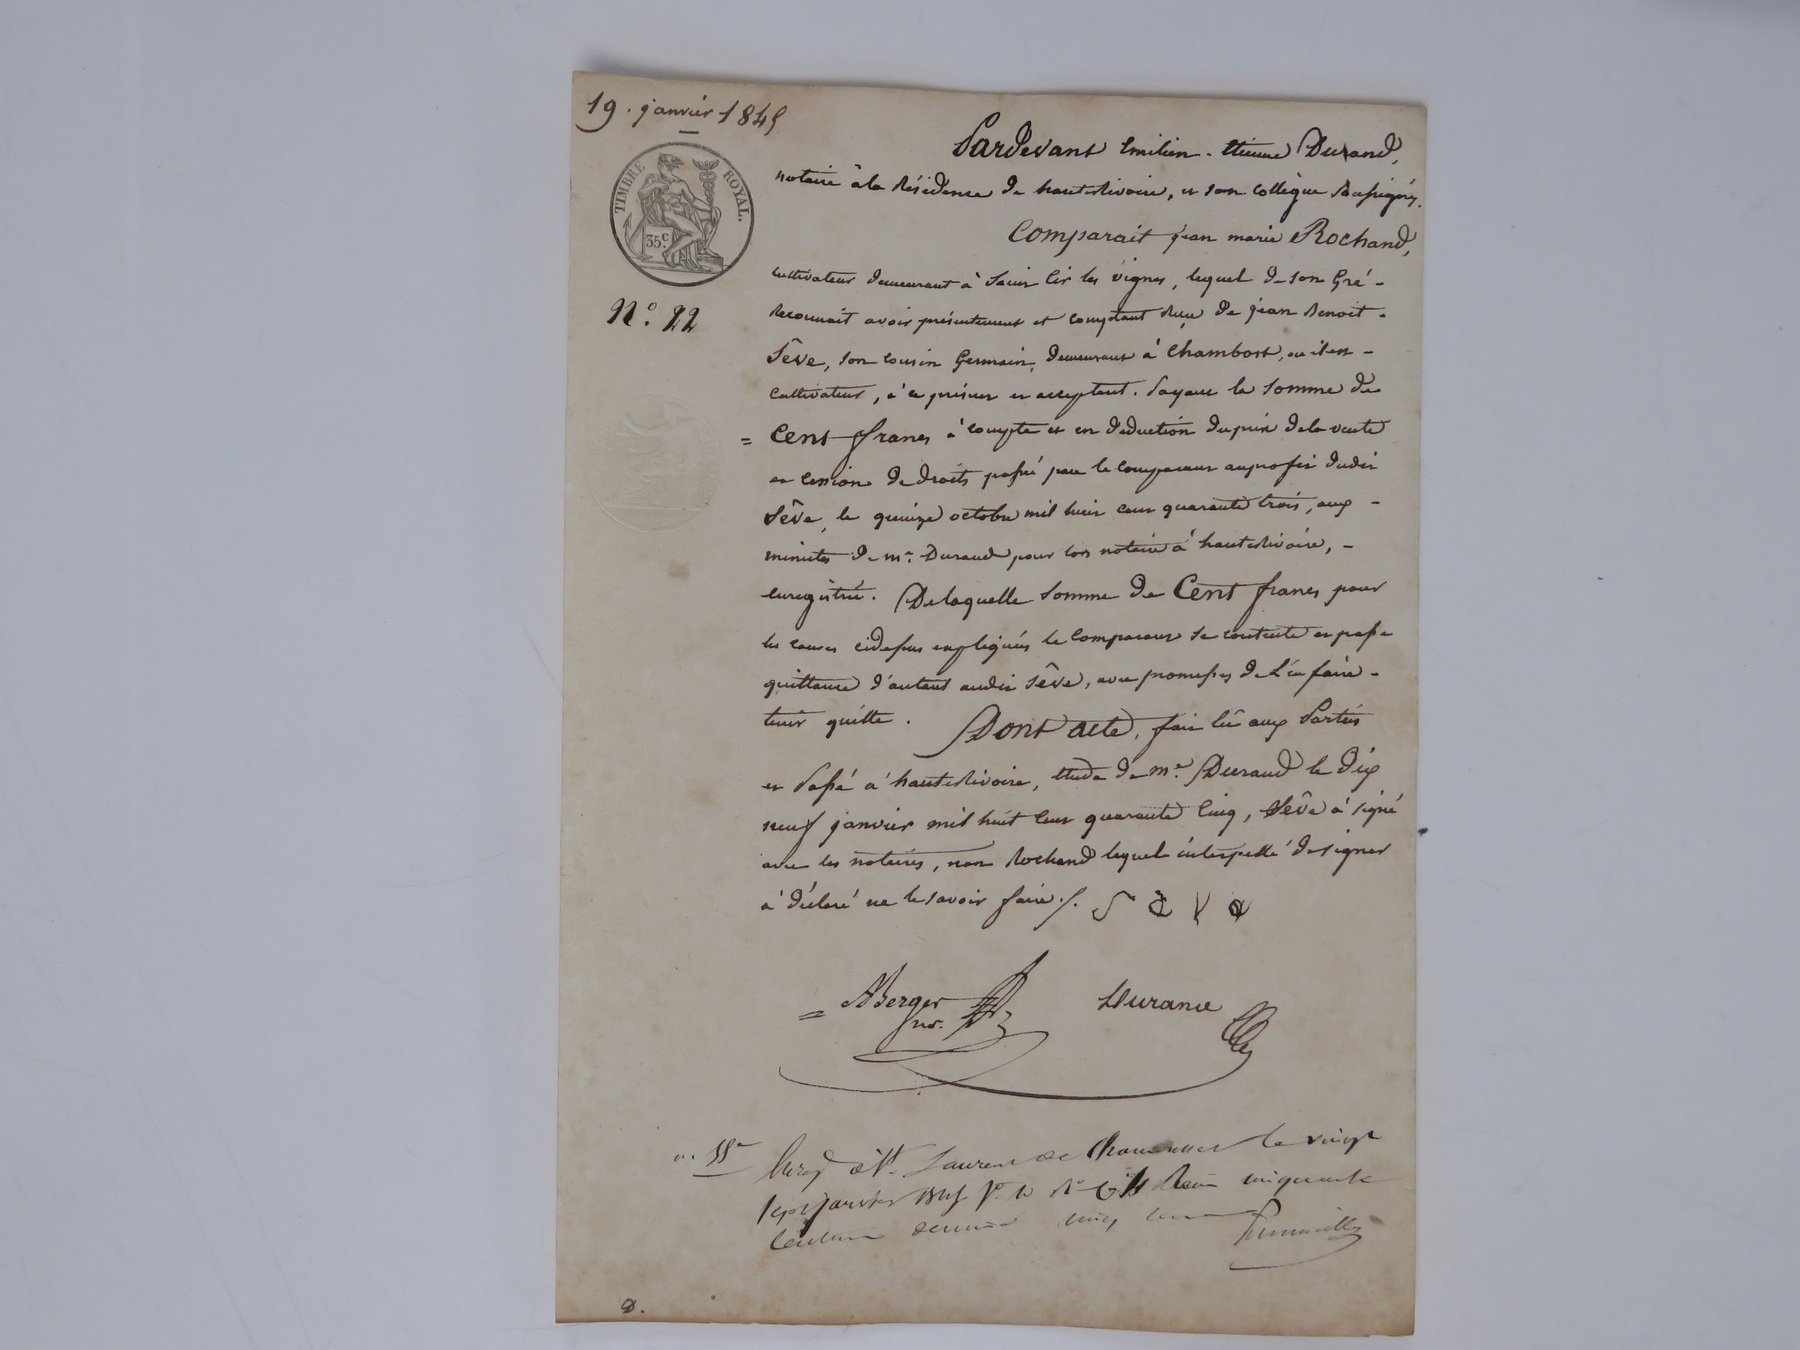 19. janvier 1845
Pardevant Emilien-Etienne Durand,
TIMBRE ROYAL.
35c.
notaire à la Résidence de hauterivoire, et son collègue Soussignés.
Comparait jean marie Rochand,
N.° 22
cultivateur demeurant à Saint Cir les vignes, lequel de son Gré -
Reconnait avoir présentement et comptant Reçu de jean Benoit -
Sêve, son cousin Germain, demeurant à Chambost, ou il est -
Cultivateur, à ce présent et acceptant. Payant la somme de
= Cent francs à compte et en déduction du prix de la vente
et cession de droits passé par le comparant au profit dudit
Sêve, le quinze octobre mil huit cent quarante trois, aux -
minutes de me. Durand pour lors notaire à hauterivoire, -
enregistré. De laquelle somme de Cent francs pour
les causes cidessus expliquées le Comparant se contente et passe
quittance d'autant audit Sêve, avec promesses de L'en faire -
tenir quitte. Dont acte, fait lû aux Parties
et Passé à hauterivoire, étude de me. Durand le dix
neuf janvier mil huit cent quarante Cinq, Sêve à signé
avec les notaires, non Rochand lequel interpellé de signer
à déclaré ne le savoir faire./. S E V e
= ABerger Durand
nre.
Enreg à St. Laurent de Chamousset le vingt
janvier 1845 Reçu cinquante
centimes decime cinq cent
D.